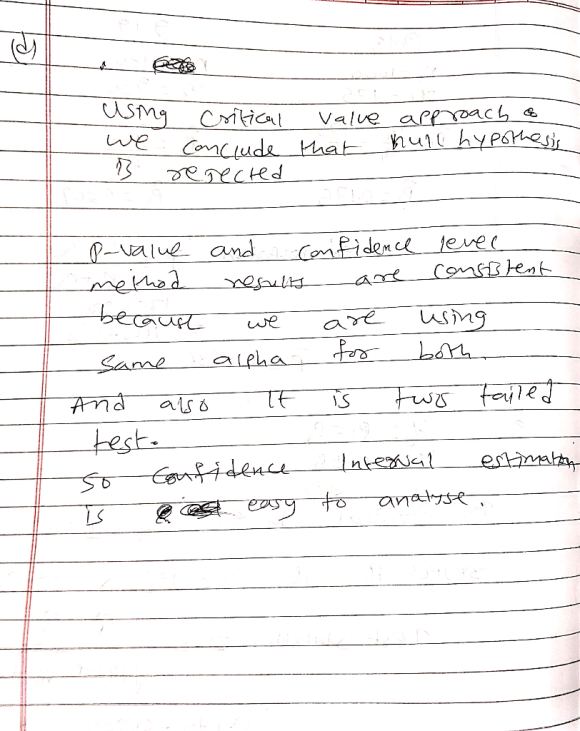 (d)
Using Critical Value approach
we conclude that null hypothesis
is rejected
P-value and Confidence level
method results are consistent
because we are using
same alpha for both.
And also It is two tailed
test.
So Confidence Interval estimation
is easy to analyse.